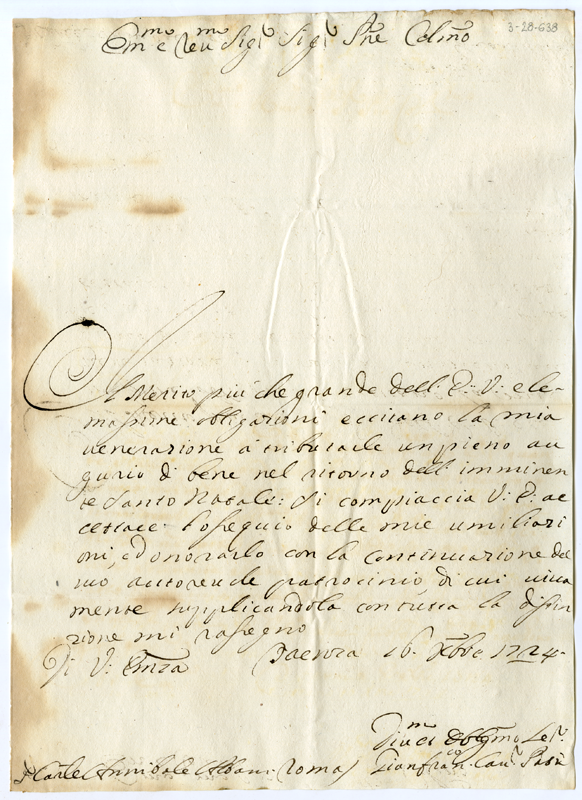 3-28-638
Em͞mo e Reu͞mo Sigr Sigr Pn͞e Colm͞o
Il Merito piú che grande dell' E: V: e le
massime obligazioni eccitano la mia
uenerazione à tributarle un pieno au
gurio di bene nel ritorno dell' imminen
te Santo Natale: Si compiaccia V: E: ac
cettare l'osequio delle mie umiliazi
oni, ed onorarlo con la continuazione del
suo autoreuole patrocinio, di cui uiua
mente supplicandola con tutta la
zione mi rasegno
Di V: Em͞za Faenza 16. Xb͞re 1724.
Diu͞mo et Obg͞mo Se͞r.
Sr Carle Annibale Albani Roma Gianfranco Cau͞r